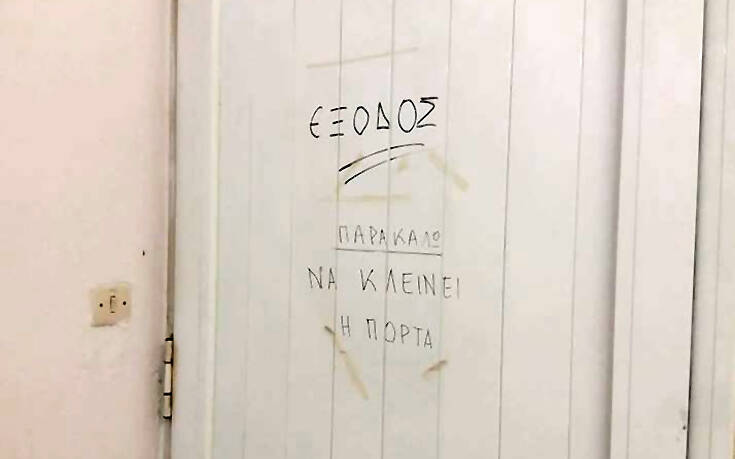 ΕΞΟΔΟΣ
ΠΑΡΑΚΑΛΩ
ΝΑ ΚΛΕΙΝΕΙ
Η ΠΟΡΤΑ